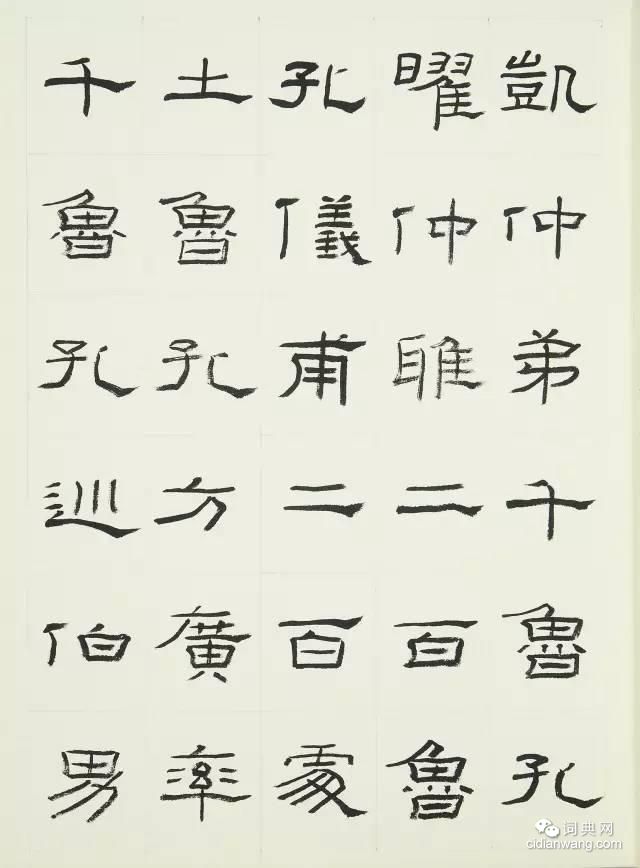 凱仲弟千魯孔
曜仲雅二百魯
孔儀甫二百處
土魯孔方廣率
千魯孔巡伯男
词典网
cidianwang.com